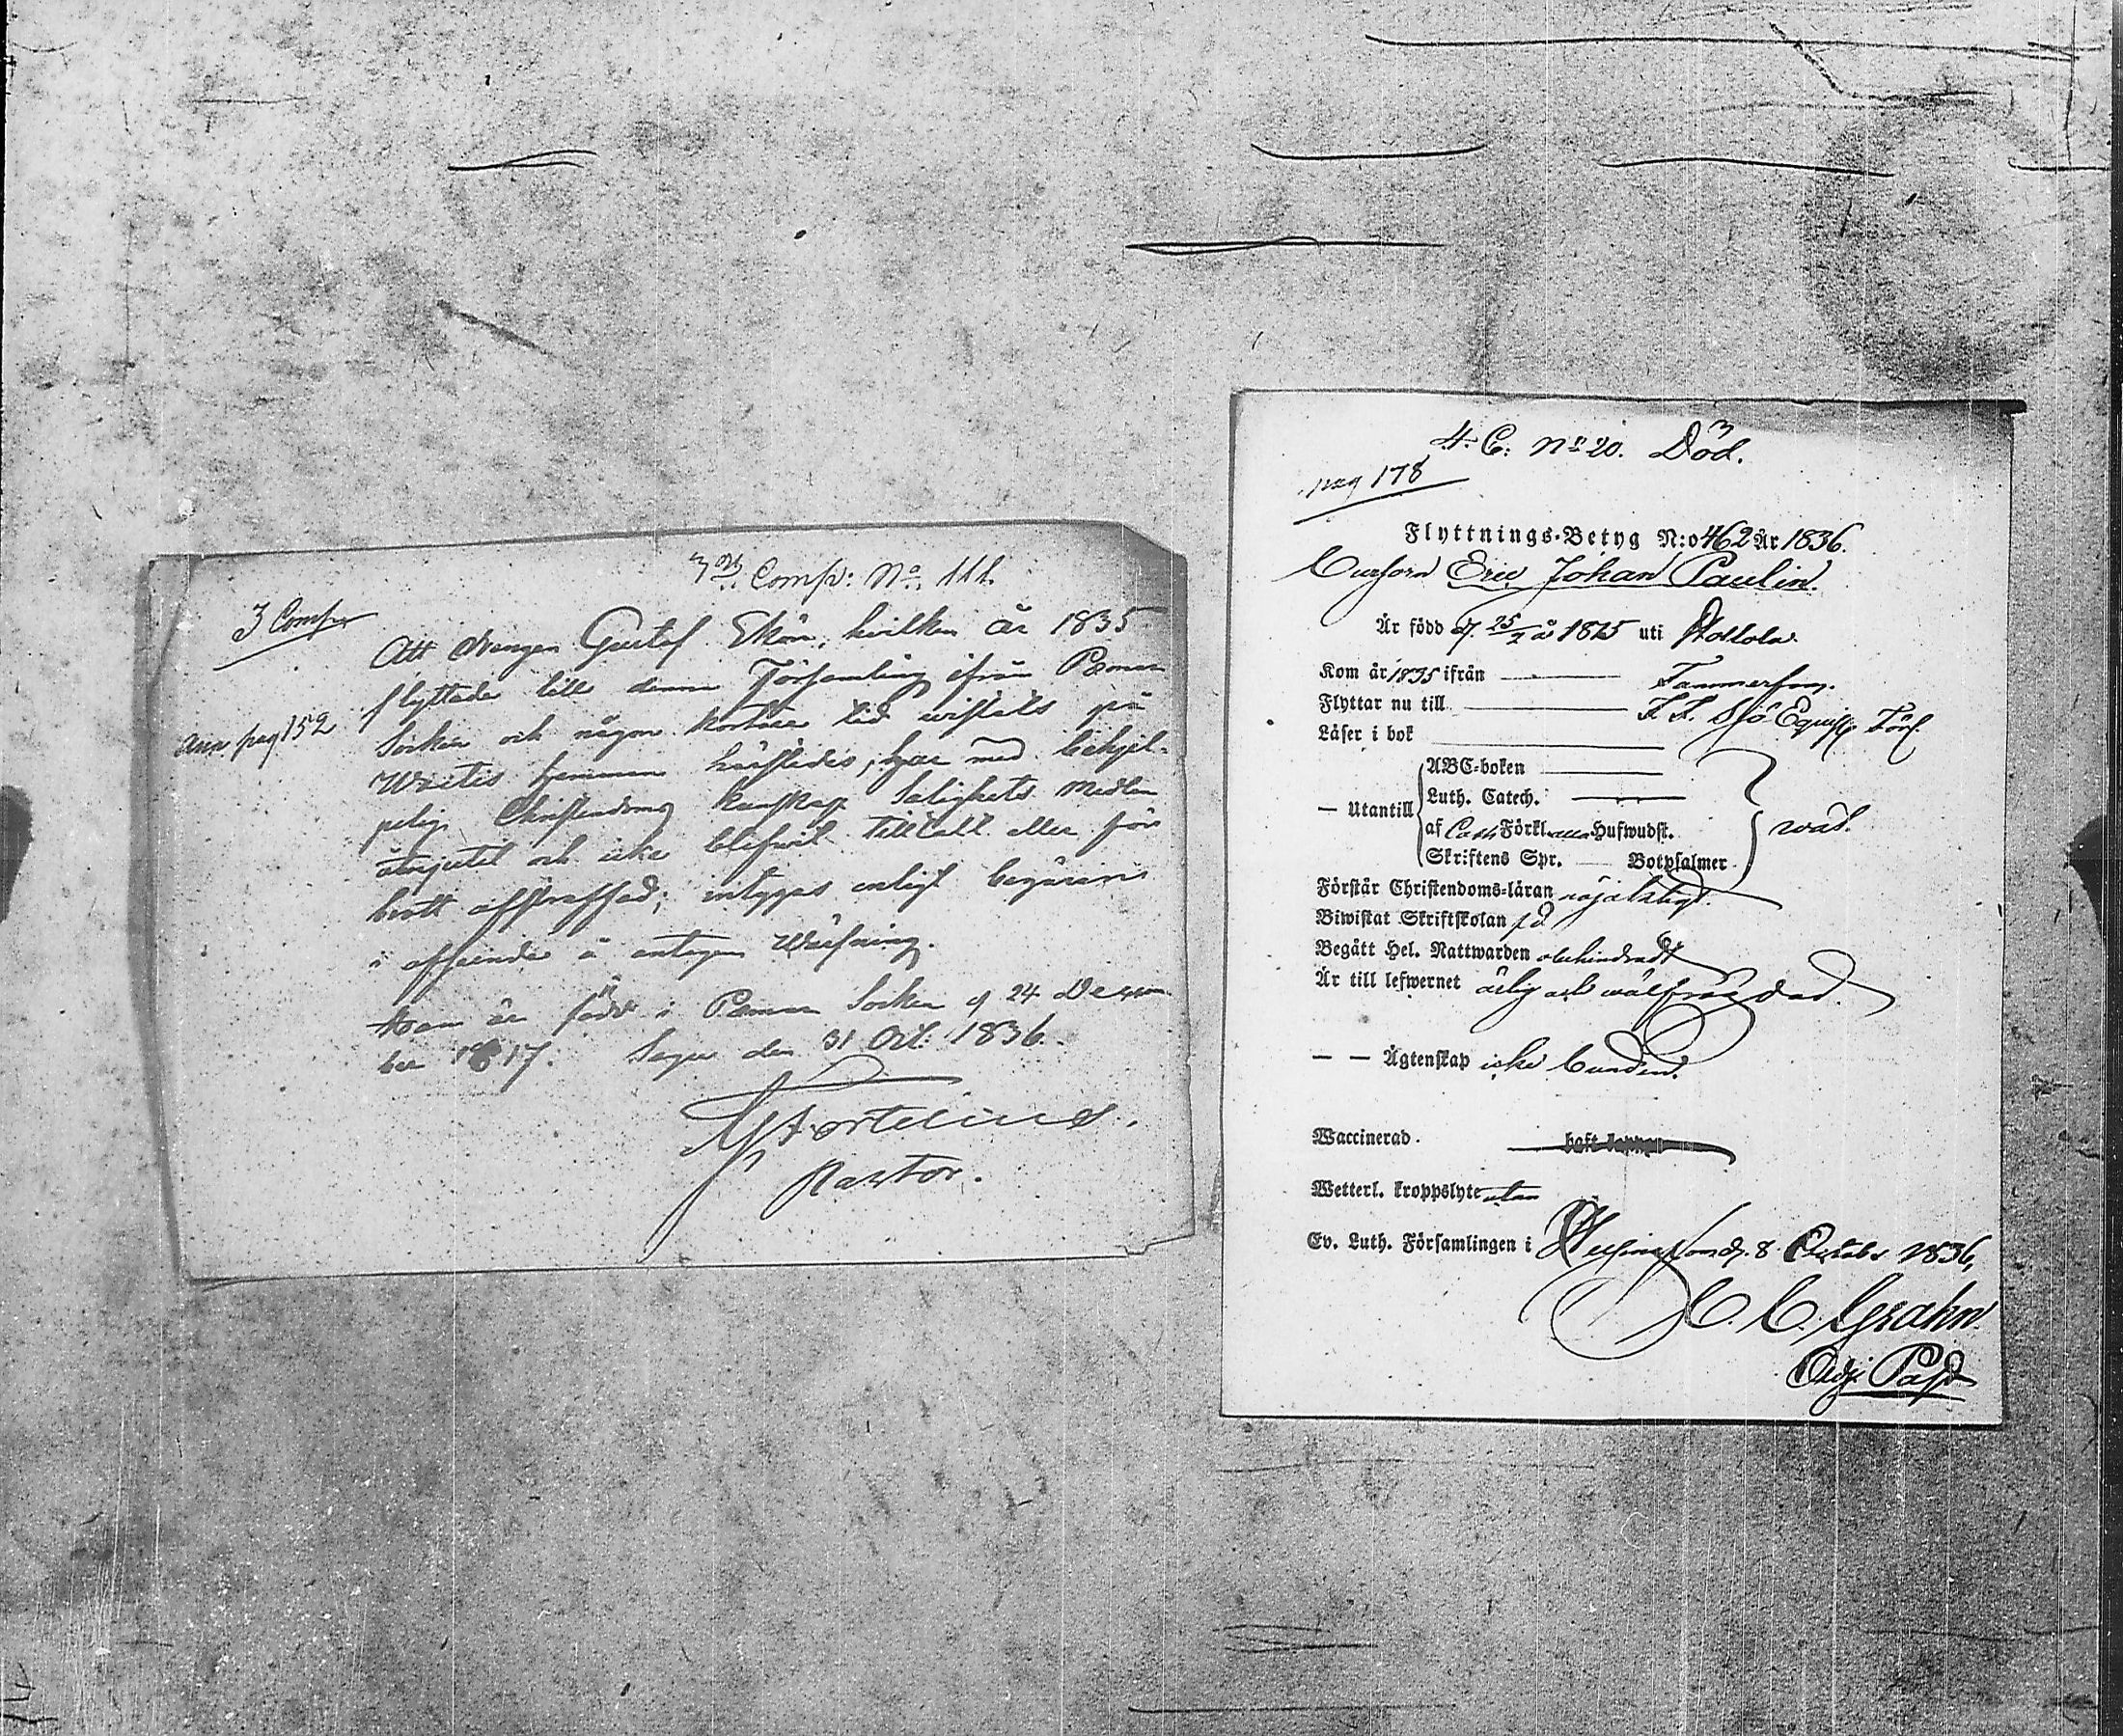 3 Comp: No. 111.
3 Comp
Ann. pag 152
Att Drengen Gustaf Ekön, hvilken är 1835
flyttade till denna Församling ifrån Pemar
Socken och någon kortare tid vistats på
hemman härstädes, har med behjel-
pelig Christendoms kunskap Salighets Medlen
åtnjutit och icke blifvit tilltalt eller för
brott affstraffad; intygas enligt begäran
i afseende å antagen Värfning.
Han är född i Pemar Socken d 24 Decem-
ber 1817. Sagu den 31 Oct: 1836.
Pastor.
4. C: No 20. Död.
pag 178
Flyttnings-Betyg N:o 462 År 1836.
Eric Johan Paulin.
Är född d. 25/2 år 1815 uti Hollola
Kom år 1835 ifrån Tammerfors.
Flyttar nu till F. F. Sjö Equip. Förs.
Läser i bok
ABC-boken
Luth. Catech.
— Utantill
af Förkl. Hufwudst.
Skriftens Spr. Botpsalmer
wäl.
Förstår Christendoms-läran nöjaktligt.
Biwistat Skriftskolan
Begått Hel. Nattwarden obehindradt
Är till lefwernet ärlig och wälfrägdad.
— — Ägtenskap icke bunden.
Waccinerad.
Wetterl. kroppslyte utan
Ev. Luth. Församlingen i Helsingfors d. 8 October 1836,
C. C. Grahn
Adj. Past